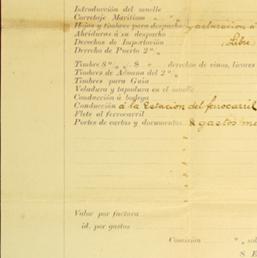 Introducción del muelle
Corretaje Marítimo
Hojas y timbres para despacho y aclaración á
Abriduras á su despacho
Derechos de Importación (Libre
Derecho de Puerto 2
Timbre 8 % „ $ derechos de vinos, licores
Timbres de Aduana del 2 %
Timbres para Guía
Veladura y tapadura en el muelle
Conducción á bodega
Conducción á la Estación del ferrocarril
Flete al ferrocarril
Portes de cartas y documentos & gastos me
Valor por factura
id. por gastos
Comisión „ sob
S E